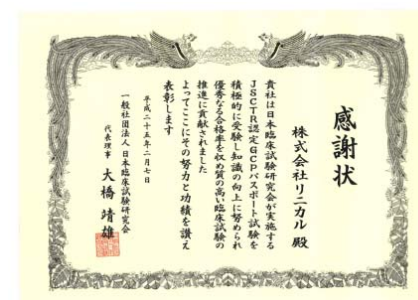 感謝状
株式会社リニカル 殿
貴社は日本臨床試験研究会が実施する
JSCTR認定GCPパスポート試験を
積極的に受験し知識の向上に努められ
優秀なる合格率を収め質の高い臨床試験の
推進に貢献されました
よってここにその努力と功績を讃え
表彰します
平成二十五年二月七日
一般社団法人 日本臨床試験研究会
代表理事 大橋 靖雄